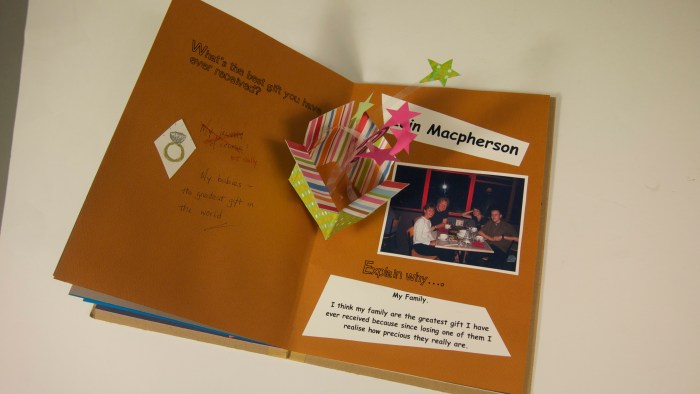 What's the best gift you have
ever received?
My babies -
the greatest gift in
the world
Macpherson
Explain why....
My Family.
I think my family are the greatest gift I have
ever received because since losing one of them I
realise how precious they really are.